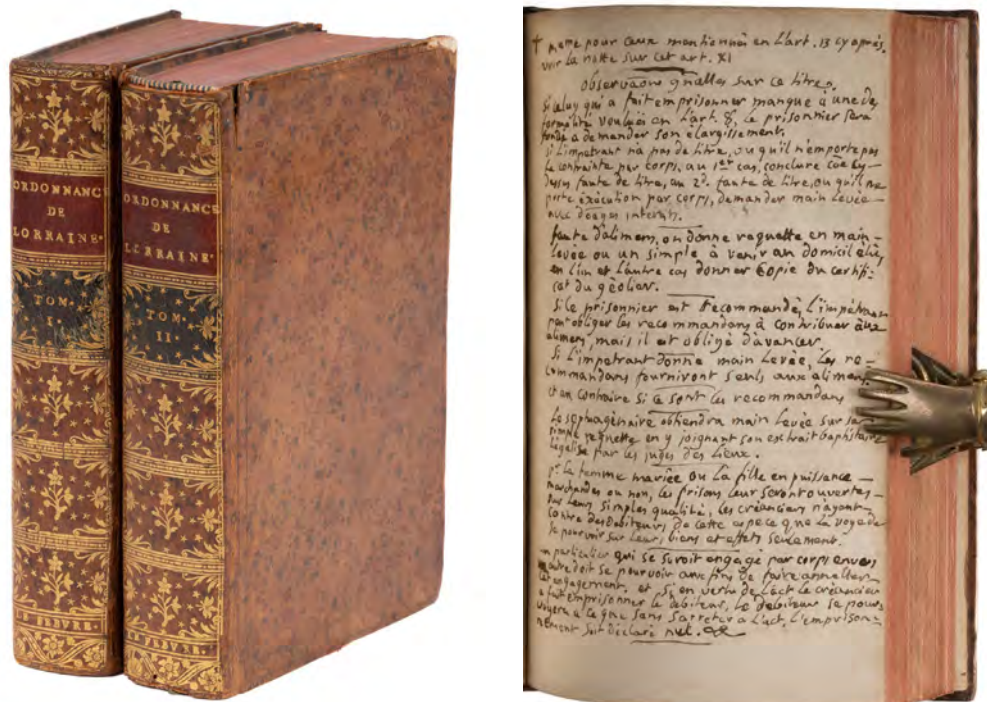 ORDONNANCE
DE
LORRAINE.
TOM.
I.
LE FEBVRE.
ORDONNANCE
DE
LORRAINE.
TOM.
II.
LE FEBVRE.
† meme pour ceux mentionnés en L'art. 13 cy après,
voir la notte sur cet art. XI
observaōns gnalles sur ce titre.
Si celuy qui a fait emprisonner manque a une des
formalité voulües en L'art. 8, Le prisonnier sera
fondé a demander son élargissement.
Si L'impetrant n'a pas de titre, ou qu'il n'emporte pas
la contrainte par corps, au 1er cas, conclure cōe cy-
dessus faute de titre, au 2d. faute de titre, ou qu'il ne
porte exécution par corps, demander main Levée
avec domages interêts.
faute d'alimens, on donne requette en main-
Levée ou un simple à venir au domicil élu,
en L'un et L'autre cas donner Copie du certifi-
cat du géolier.
Si le prisonnier est Recommandé, L'impétrant
peut obliger les recommandans à contribuer aux
alimens, mais il est obligé d'avancer.
Si L'impetrant donne main Levée, Les re-
commandans fourniront seuls aux alimens,
et au contraire Si ce sont les recommandans
Le septuagénaire obtiendra main Levée sur sa
simple requette en y joignant son extrait baptistaire
légalisé par les juges des Lieux.
pr. La femme mariée ou La fille en puissance
marchandes ou non, les prisons leur seront ouvertes
sur leurs simples qualité, les créanciers n'ayant
contre des débiteurs de cette espece que la voye de
se pourvoir sur leurs biens et effets seulement.
un particulier qui se seroit engagé par corps envers
un autre doit se pourvoir aux fins de faire annuller
cet engagement, et si en vertu de L'act. Le créancier
a fait emprisonner le débiteur, Le débiteur se pour-
voyera a ce que sans s'arreter a L'act. L'emprison-
nement soit déclaré nul.